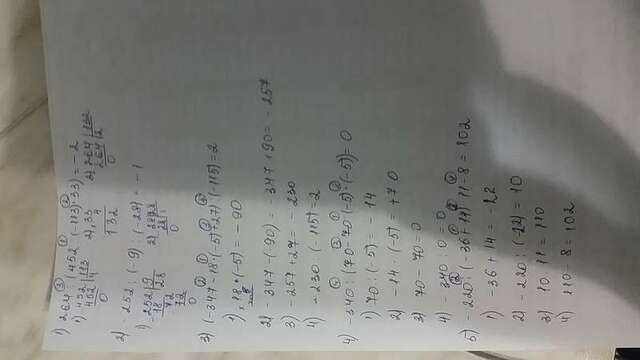 1) 264 : (452 : (-113) · 33) = -2
1) 452 | 113
452 | 4
0
2) 33
4
132
3) 264 | 132
264 | 2
0
2) -252 : (-9) : (-28) = -1
1) 252 | 9
18 | 28
72
72
0
2) 28 | 28
28 | 1
0
3) (-347 - 18 · (-5) + 27) : (-115) = 2
1) 18 · (-5) = -90
2) -347 - (-90) = -347 + 90 = -257
3) -257 + 27 = -230
4) -230 : (-115) = 2
4) -340 : (70 - 70 : (-5) · (-5)) = 0
1) 70 : (-5) = -14
2) -14 · (-5) = +70
3) 70 - 70 = 0
4) -340 : 0 = 0
5) -220 : (-36 + 14) · 11 - 8 = 102
1) -36 + 14 = -22
2) -220 : (-22) = 10
3) 10 · 11 = 110
4) 110 - 8 = 102